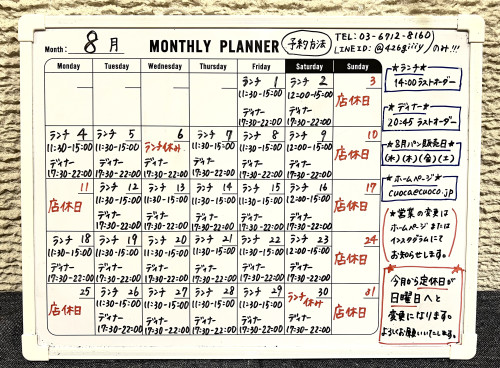 Month: 8月 MONTHLY PLANNER 予約方法 TEL:03-6712-8160
LINE ID:@426ɡiiyのみ!!!
Monday Tuesday Wednesday Thursday Friday Saturday Sunday
1 2 3
ランチ ランチ
11:30-15:00 12:00-15:00 店休日
ディナー ディナー
17:30-22:00 17:30-22:00
4 5 6 7 8 9 10
ランチ ランチ ランチ休み ランチ ランチ ランチ
11:30-15:00 11:30-15:00 11:30-15:00 11:30-15:00 12:00-15:00 店休日
ディナー ディナー ディナー ディナー ディナー ディナー
17:30-22:00 17:30-22:00 17:30-22:00 17:30-22:00 17:30-22:00 17:30-22:00
11 12 13 14 15 16 17
ランチ ランチ ランチ ランチ ランチ
店休日 11:30-15:00 11:30-15:00 11:30-15:00 11:30-15:00 12:00-15:00 店休日
ディナー ディナー ディナー ディナー ディナー
17:30-22:00 17:30-22:00 17:30-22:00 17:30-22:00 17:30-22:00
18 19 20 21 22 23 24
ランチ ランチ ランチ ランチ ランチ ランチ
11:30-15:00 11:30-15:00 11:30-15:00 11:30-15:00 11:30-15:00 12:00-15:00 店休日
ディナー ディナー ディナー ディナー ディナー ディナー
17:30-22:00 17:30-22:00 17:30-22:00 17:30-22:00 17:30-22:00 17:30-22:00
25 26 27 28 29 30 31
ランチ ランチ ランチ ランチ ランチ休み
店休日 11:30-15:00 11:30-15:00 11:30-15:00 11:30-15:00 店休日
ディナー ディナー ディナー ディナー ディナー
17:30-22:00 17:30-22:00 17:30-22:00 17:30-22:00 17:30-22:00
★ランチ★
14:00ラストオーダー
★ディナー★
20:45ラストオーダー
★8月パン販売日★
(水)(木)(金)(土)
★ホームページ★
cuocaecuoco.jp
★営業の変更は
ホームページまたは
インスタグラムにて
お知らせします。
今月から定休日が
日曜日へと
変更になります。
よろしくお願いいたします。